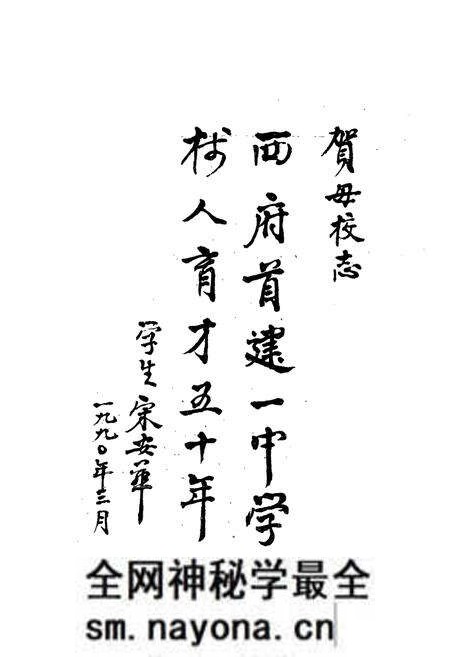 賀母校志
西府首建一中学
树人育才五十年
学生宋安華
一九九〇年三月
全网神秘学最全
sm.nayona.cn